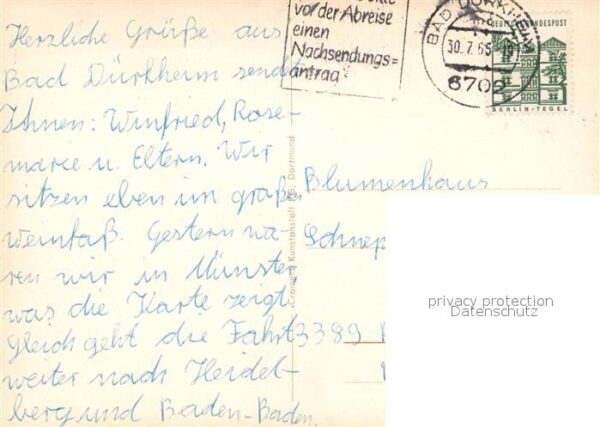 Herzliche Grüße aus
Bad Dürkheim sendet
Ihnen: Winfried, Rose-
marie u. Eltern. Wir
sitzen eben im großen
Weinfaß. Gestern wa-
ren wir in Münster
was die Karte zeigt.
Gleich geht die Fahrt
weiter nach Heidel-
berg und Baden-Baden.
vor der Abreise
einen
Nachsendungs=
antrag
BAD DÜRKHEIM
30.7.65
6702
DEUTSCHE BUNDESPOST
BERLIN-TEGEL
Kunstanstalt KG. Dortmund
Blumenhaus
Schnep
3389
privacy protection
Datenschutz